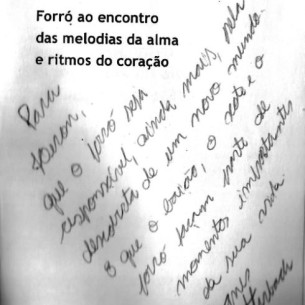 Forró ao encontro
das melodias da alma
e ritmos do coração
Para
que o forró seja
responsável, ainda mais, pela
descoberta de um novo mundo.
E que o baião, o xote e o
forró façam parte de
momentos importantes
da sua vida.